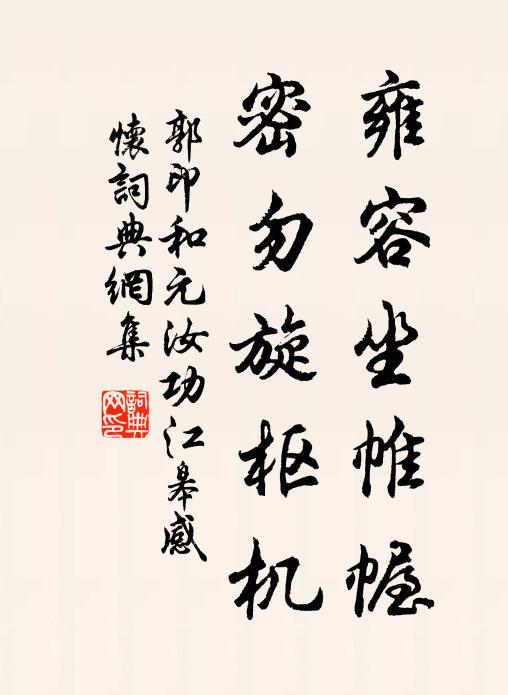 雍容坐帷幄
密勿旋枢机
郭印和元汝功江皋感
懷詞典網集
詞典网印